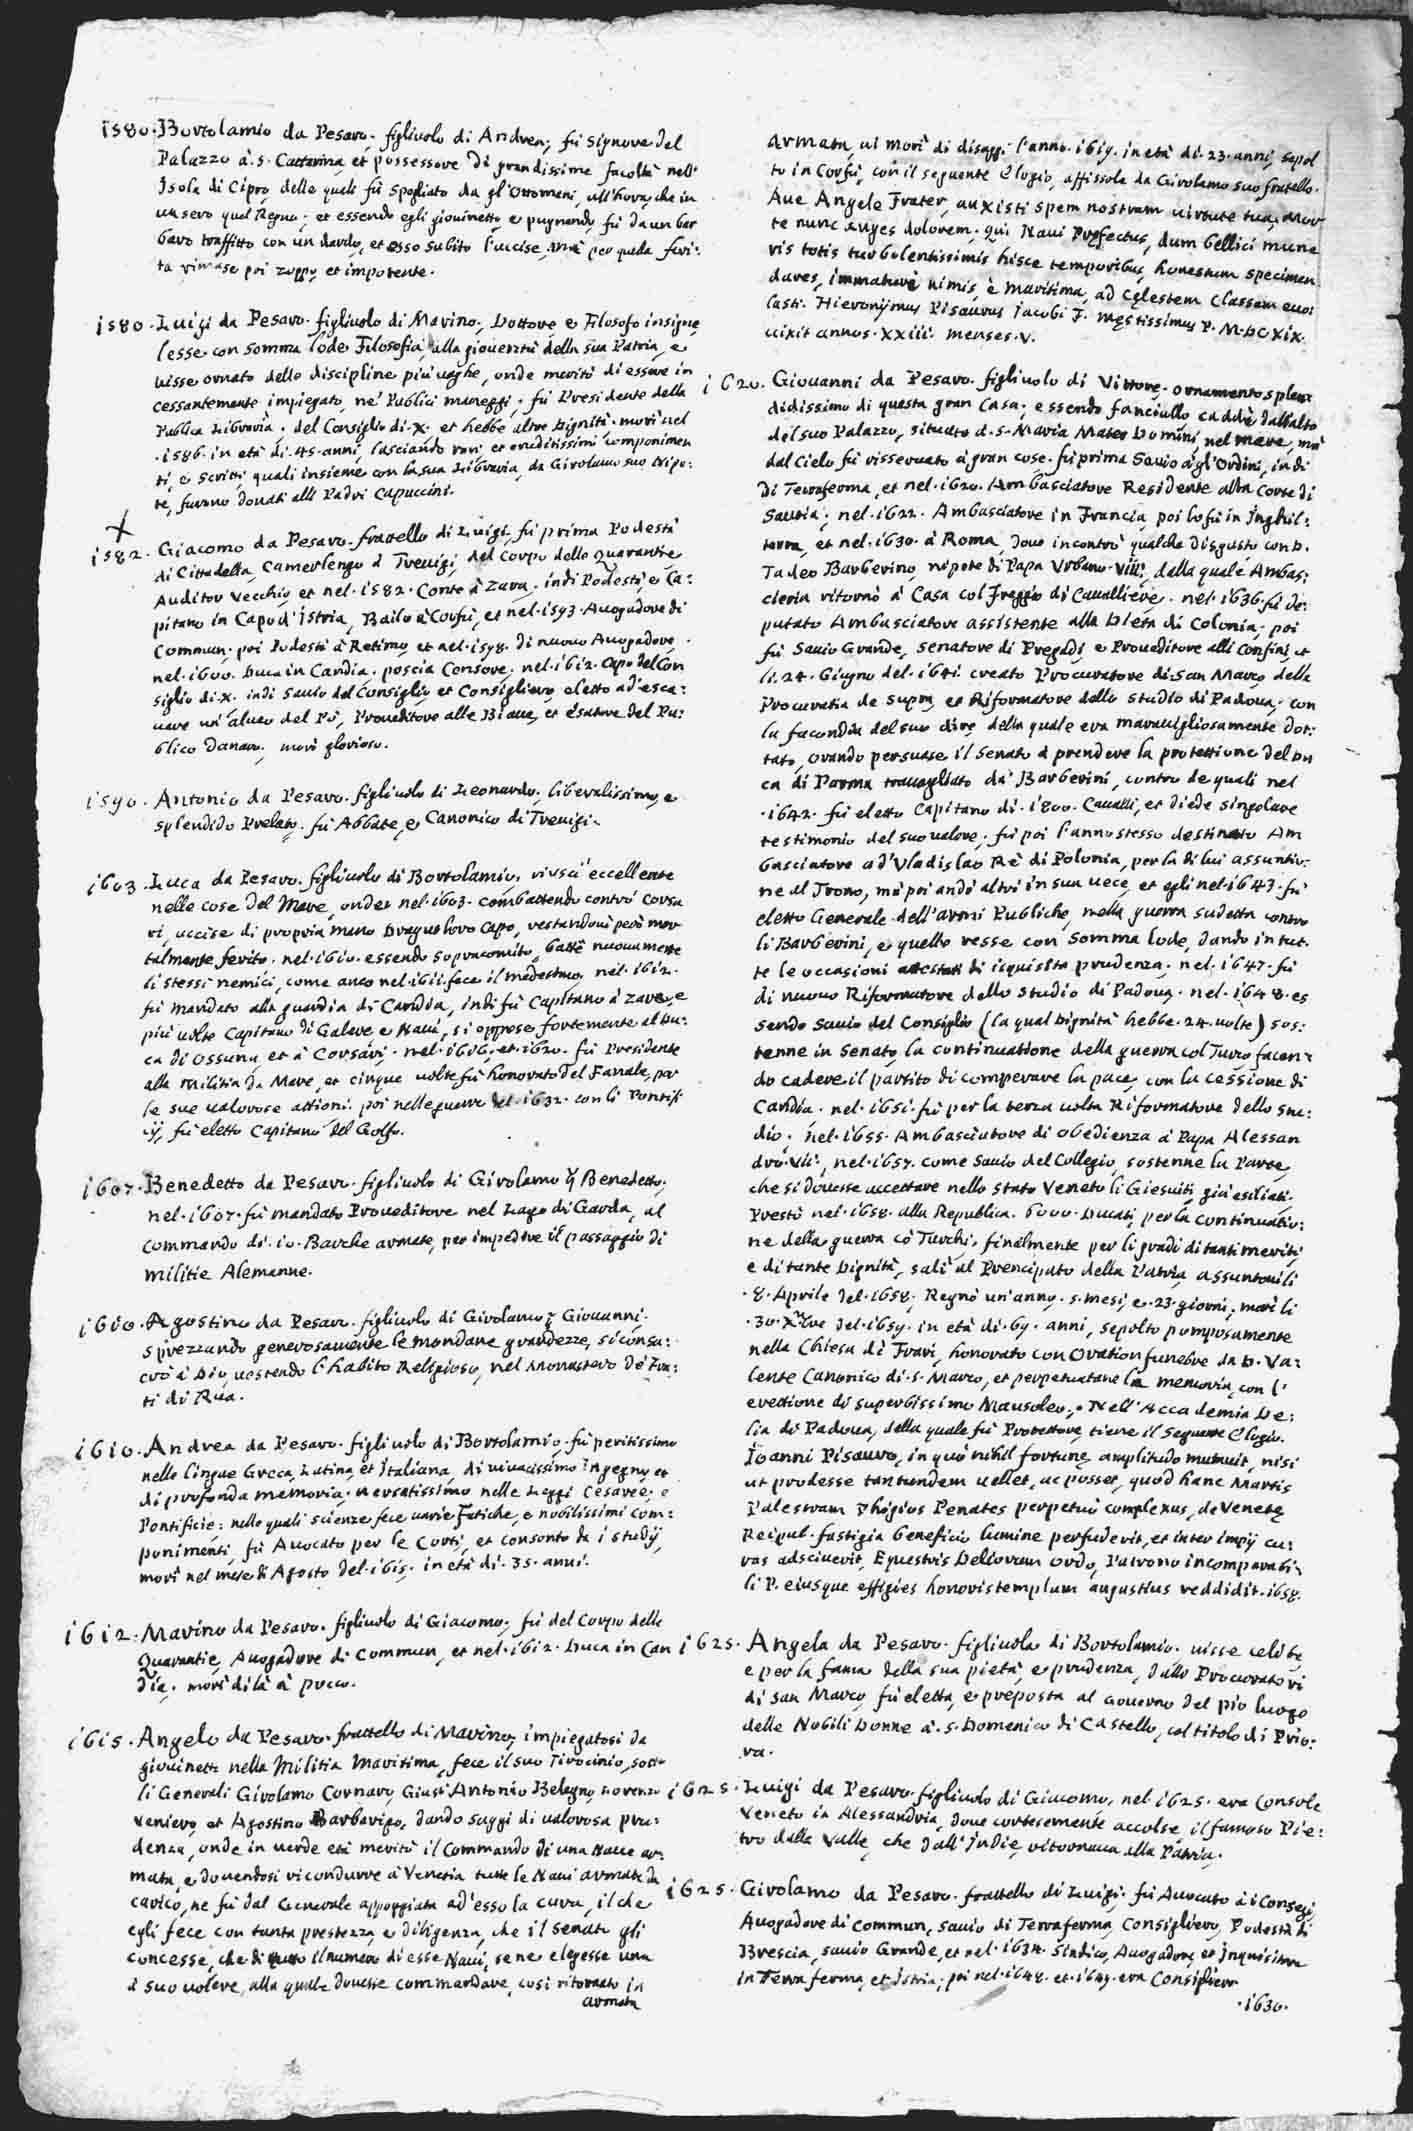 1580. Bortolamio da Pesaro. figliuolo di Andrea; fù Signore del
Palazzo à. S. Catterina, et possessore di grandissime facoltà nell'
Isola di Cipro, delle quali fù spogliato da gl'Ottomani, all'hora, che in
uasero quel Regno; et essendo egli giouinetto, e pugnando, fù da un bar
baro traffitto con un dardo, et esso subito l'uccise, mà per quella feri:
ta rimase poi zoppo, et impotente.
1580. Luigi da Pesaro. figliuolo di Marino; Dottore e Filosofo insigne,
lesse con somma lode Filosofia alla giouentù della sua Patria, e
uisse ornato delle discipline più uaghe, onde meritò di essere in
cessantemente impiegato, ne' Publici maneggi; fù Presidente della
Publica Libraria. del Consiglio di. X. et hebbe altre Dignità. morì nel
.1586. in età di. 45. anni, lasciando rari et eruditissimi componimen
ti, e scritti, quali insieme con la sua Libraria, da Girolamo suo Nipo:
te, furono donati alli Padri Capuccini.
X
1582. Giacomo da Pesaro. frattello di Luigi, fù prima Podestà
di Cittadella, Camerlengo à Treuigi, del Corpo delle Quarantie,
Auditor Vecchio, et nel. 1582. Conte à Zara. indi Podestà, e Ca:
pitano in Capo d'Istria, Bailo à Corfù, et nel. 1593. Auogadore di
Commun. poi Podestà à Retimo, et nel. 1598. di nuouo Auogadore.
nel. 1600. Duca in Candia. poscia Censore. nel. 1612. Capo del Con
siglio di. X. indi Sauio del Consiglio, et Consigliero, eletto ad'esca:
uare un'alueo del Pò, Proueditore alle Biaue, et esatore del Pu:
blico danaro, morì glorioso.
1590. Antonio da Pesaro. figliuolo di Leonardo, liberalissimo, e
splendido Prelato. fù Abbate, e Canonico di Treuigi.
1603. Luca da Pesaro. figliuolo di Bortolamio. riuscì eccellente
nelle cose del Mare, onde nel. 1603. combattendo contro Corsa
ri, uccise di propria mano Dragut loro Capo, restandoui però mor
talmente ferito. nel. 1610. essendo sopracomito, battè nuouamente
li stessi nemici, come anco nel. 1611. fece il medesimo. nel. 1612.
fù mandato alla guardia di Candia, indi fù Capitano à Zara, e
più uolte Capitano di Galere e Naui, si oppose fortemente al Du:
ca di Ossuna, et à Corsari. nel. 1616. et. 1620. fù Presidente
alla Militia da Mare, et cinque uolte fù honorato del Fanale, per
le sue ualorose attioni. poi nelle guerre del. 1632. con li Pontifi
cij, fù eletto Capitano del Golfo.
1607. Benedetto da Pesaro. figliuolo di Girolamo q Benedetto,
nel. 1607. fù mandato Proueditore nel Lago di Garda, al
Commando di. 10. Barche armate, per impedire il passaggio di
militie Alemanne.
1610. Agostino da Pesaro. figliuolo di Girolamo q Giouanni.
sprezzando generosamente le mondane grandezze, si consa:
crò à Dio, uestendo l'habito Religioso, nel Monastero de' Fra:
ti di Rua.
1610. Andrea da Pesaro. figliuolo di Bortolamio. fù peritissimo
nelle lingue Greca, Latina, et Italiana, di uiuacissimo Ingegno, et
di profonda memoria; uersatissimo nelle Leggi Cesaree, e
Pontificie: nelle quali scienze fece uarie Fatiche, e nobilissimi com:
ponimenti, fù Auocato per le Corti, et consonto da i studij,
morì nel mese di Agosto del. 1615. in età di. 35. anni.
1612. Marino da Pesaro. figliuolo di Giacomo; fù del Corpo delle
Quarantie, Auogadore di Commun, et nel. 1612. Duca in Can
dia. morì di là à poco.
1615. Angelo da Pesaro. frattello di Marino, impiegatosi da
giouinetto nella Militia Maritima, fece il suo Tirocinio, sotto
li Generali Girolamo Cornaro, Giust'Antonio Belegno, Lorenzo
Veniero, et Agostino Barbarigo, dando saggi di ualorosa pru:
denza, onde in uerde età meritò il Commando di una Naue ar
mata, e douendosi ricondurre à Venetia tutte le Naui armate da
carico, ne fù dal Generale appoggiata ad'esso la cura, il che
egli fece con tanta prestezza, e diligenza, che il Senato gli
concesse, che di tutto il numero di esse Naui, se ne elegesse una
à suo uolere, alla quale douesse commandare, così ritornato in
armata
armata, ui morì di disaggi l'anno. 1619. in età di. 23. anni, sepol
to in Corfù, con il seguente Elogio, affissole da Girolamo suo fratello.
Aue Angele Frater, auxisti spem nostram uirtute tua, Mor
te nunc auges dolorem. qui Naui Prefectus, dum bellici mune
ris totis turbolentissimis hisce temporibus, honestum specimen
dares, immature nimis, è maritima, ad Cęlestem Classem euo:
lasti. Hieronÿmus Pisaurus Iacobi F. męstissimus P. M.DC.XIX.
uixit annos. XXIII. menses. V.
1620. Giouanni da Pesaro. figliuolo di Vittore, ornamento splen
didissimo di questa gran Casa; essendo fanciullo caddè dall'alto
del suo Palazzo, situato à. S. Maria Mater Domini, nel mare, mà
dal Cielo fù risseruato à gran cose. fù prima Sauio à gl'Ordini, indi
di Terraferma, et nel. 1620. Ambasciatore Residente alla Corte di
Sauoia; nel. 1622. Ambasciatore in Francia, poi lo fù in Inghil:
terra, et nel. 1630. à Roma, doue incontrò qualche disgusto con D.
Tadeo Barberino, nipote di Papa Urbano VIII; dalla quale Ambas:
cieria ritornò à Casa col freggio di Cauallïere. nel. 1636. fù de:
putato Ambasciatore assistente alla Dieta di Colonia; poi
fù Sauio Grande, Senatore di Pregadi, e Proueditore alli Confini, et
li. 24. Giugno del. 1641. creato Procuratore di San Marco delle
Procuratia de supra, et Riformatore dello Studio di Padoua; con
la facondia del suo dire, della quale era marauigliosamente dot:
tato, orando persuase il Senato à prendere la protettione del Du
ca di Parma trauagliato da' Barberini, contro de quali nel
.1642. fù eletto Capitano di. 1800. Caualli, et diede singolare
testimonio del suo ualore. fù poi l'anno stesso destinato Am
basciatore ad'Vladislao Rè di Polonia, per la di lui assuntio:
ne al Trono, mà poi andò altri in sua uece, et egli nel. 1643. fù
eletto Generale dell'armi Publiche, nella guerra sudetta contro
li Barberini, e quello resse con somma lode, dando in tut:
te le occasioni attestati di isquisita prudenza. nel. 1647. fù
di nuouo Riformatore dello Studio di Padoua. nel. 1648. es
sendo Sauio del Consiglio (la qual Dignità hebbe. 24. uolte) sos:
tenne in Senato, la continuatione della guerra col Turco facen:
do cadere il partito di comperare la pace, con la cessione di
Candia. nel. 1651. fù per la terza uolta Riformatore dello Stu:
dio; nel. 1655. Ambasciatore di obedienza à Papa Alessan
dro. VII. nel. 1657. come Sauio del Collegio, sostenne la Parte,
che si douesse accettare nello stato Veneto li Giesuiti, già esiliati.
Prestò nel. 1658. alla Republica. 6000. Ducati, per la continuatio:
ne della guerra cò Turchi. finalmente per li gradi di tanti meriti,
e di tante Dignità, salì al Prencipato della Patria, assuntoui li
.8. Aprile del. 1658. Regnò un'anno. 5. mesi, e. 23. giorni, morì li
.30. Xbre del. 1659. in età di. 69. anni, sepolto pomposamente
nella Chiesa di Frari, honorato con Oration funebre da D. Va:
lente Canonico di. S. Marco, et perpetuatane la memoria, con l'
erettione di superbissimo Mausoleo. Nell'Accademia De:
lia di Padoua, della quale fù Protettore, tiene il seguente Elogio.
Ioanni Pisauro, in quo nihil fortunę amplitudo mutauit, nisi
ut prodesse tantundem uellet, ac posset, quod hanc Martis
Palestram Phrigios Penates perpetuò complexus, de Venetę
Reipub. fastigia beneficio lumine perfuderit, et inter impij cu:
ras adsciuerit, Equestris Deliorum ordo, Patrono incomparabi:
li P. eiusque effigies honoris templum augustius reddidit. 1658.
1625. Angela da Pesaro. figliuola di Bortolamio. uisse celibe,
e per la fama della sua pietà, e prudenza, dalli Procuratori
di San Marco, fù eletta, e preposta al Gouerno del pio luogo
delle Nobili Donne à. S. Domenico di Castello, col titolo di Prio:
ra.
1625. Luigi da Pesaro. figliuolo di Giacomo, nel. 1625. era Console
Veneto in Alessandria, doue cortesemente accolse, il famoso Pie:
tro dalla Valle, che dall'Indie, ritornaua alla Patria.
1625. Girolamo da Pesaro. frattello di Luigi. fù Auocato à i Consegi,
Auogadore di Commun, Sauio di Terraferma, Consigliero, Podestà di
Brescia, Sauio Grande, et nel. 1634. Sindico, Auogadore, et Inquisitore
in Terra ferma, et Istria. poi nel. 1648. et. 1649. era Consigliero
.1630.